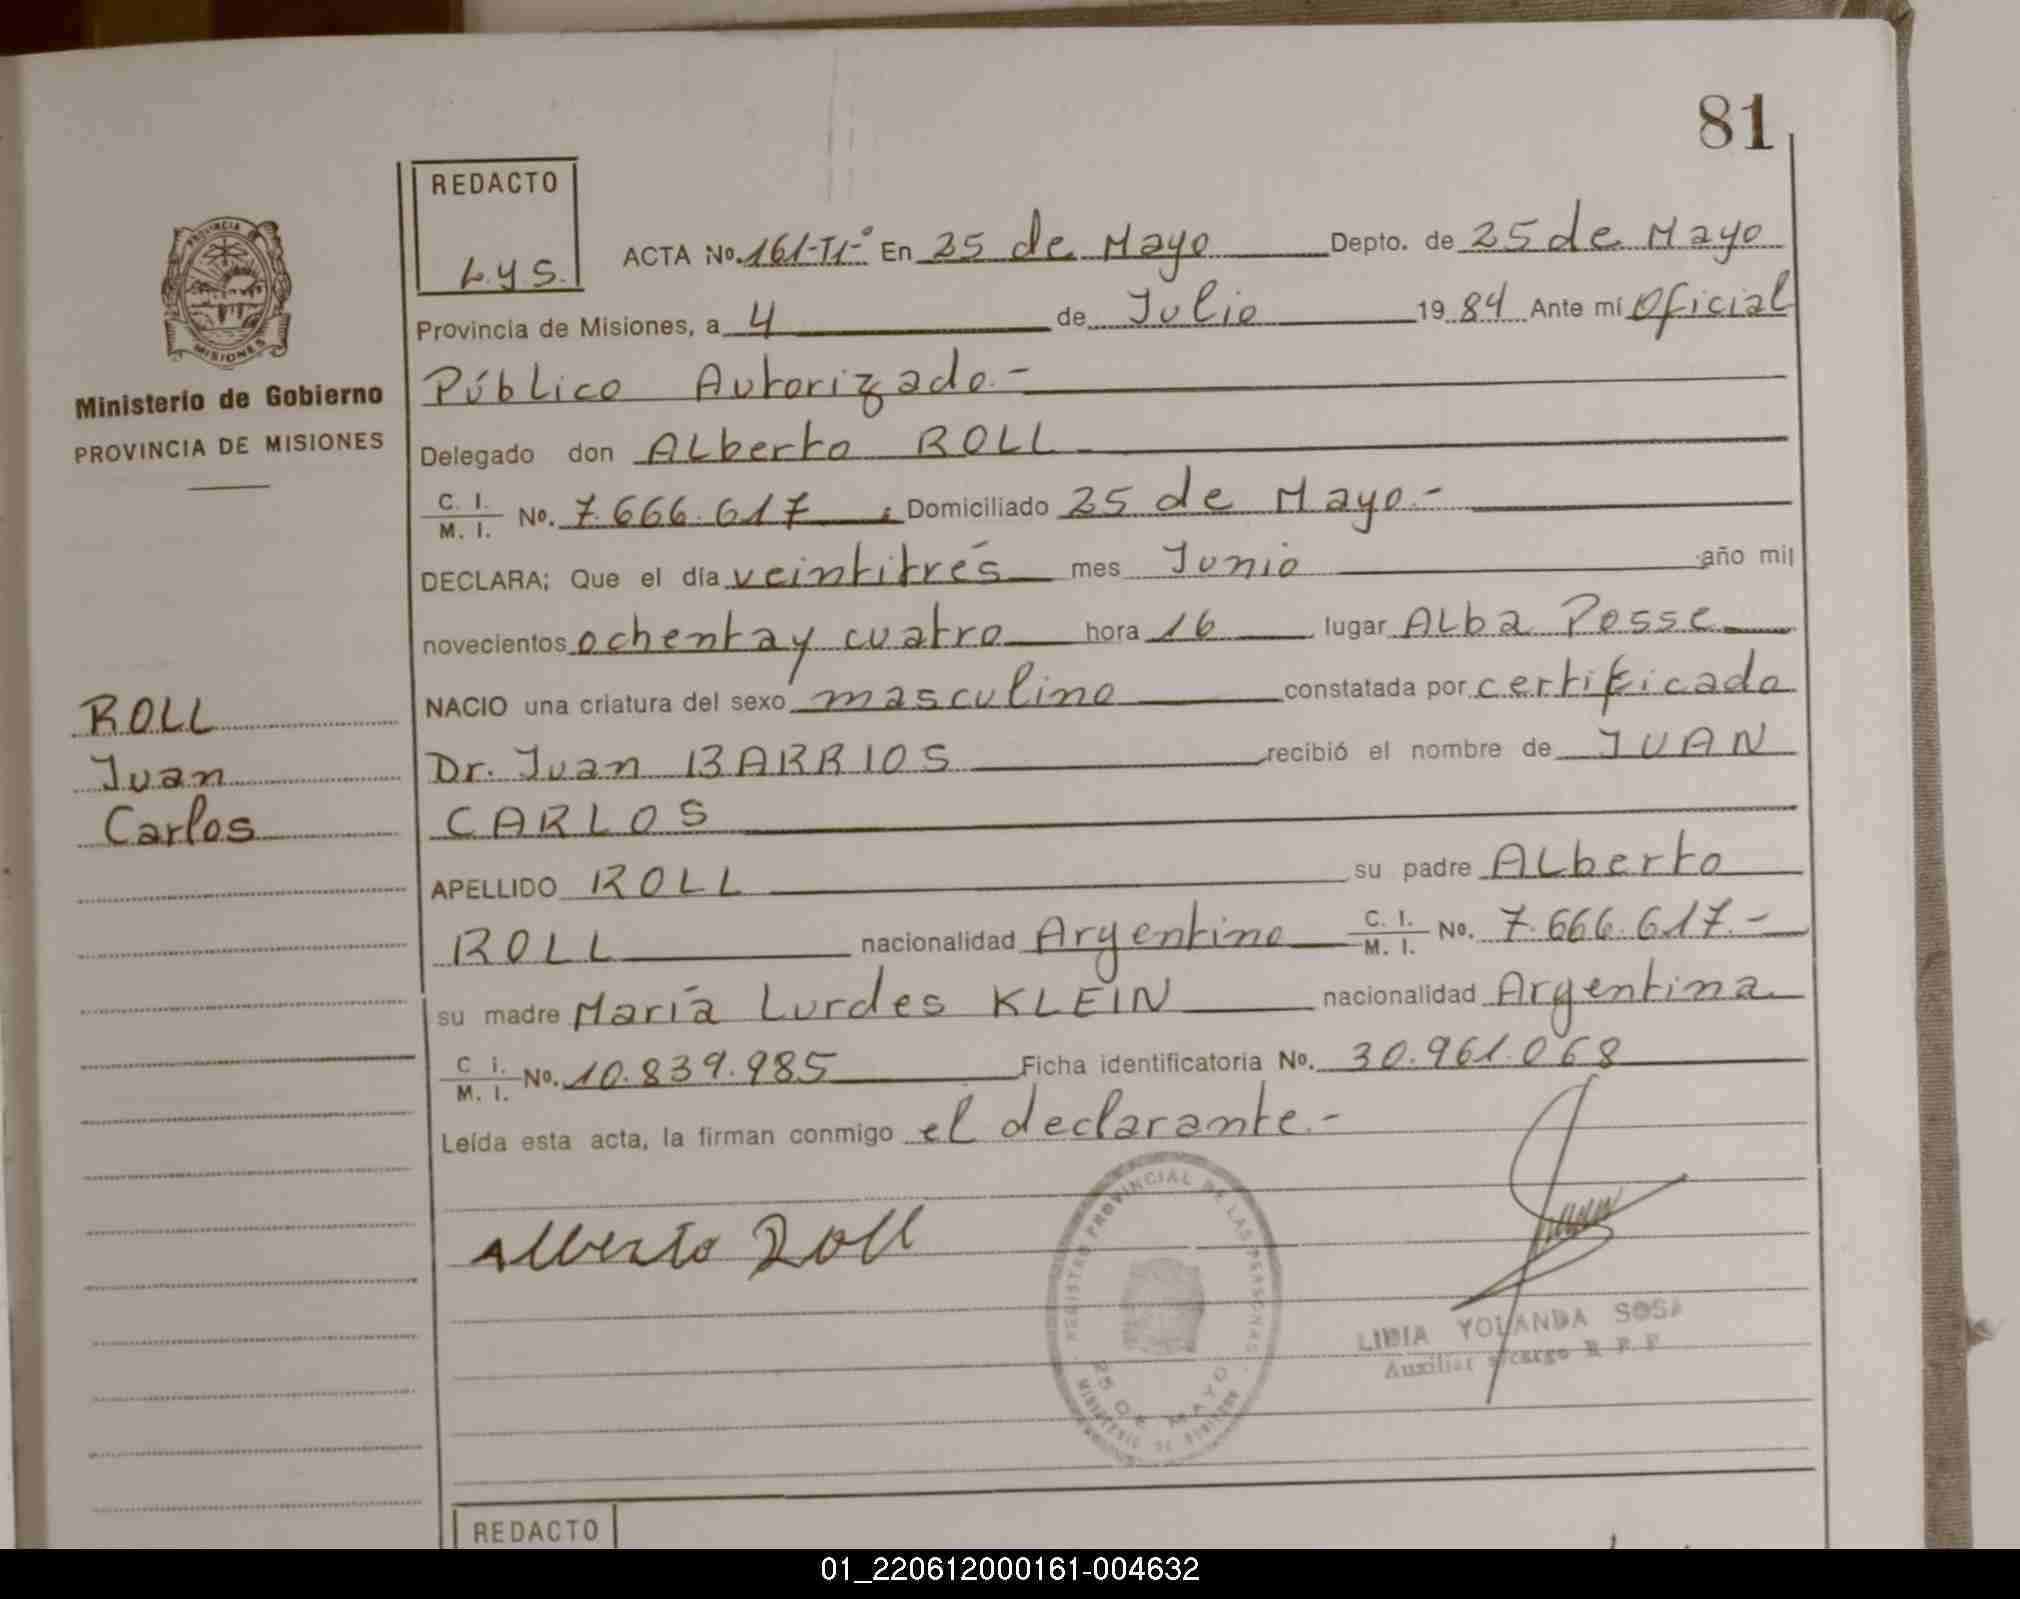 81
REDACTO
L.y S.
PROVINCIA DE
MISIONES
Ministerio de Gobierno
PROVINCIA DE MISIONES
ACTA No. 161-TI-° En 25 de Mayo Depto. de 25 de Mayo
Provincia de Misiones, a 4 de Julio 1984 Ante mí Oficial
Público Autorizado.-
Delegado don ALberto ROLL
C. I. / M. I. No. 7.666.617 , Domiciliado 25 de Mayo.-
DECLARA; Que el día veintitrés mes Junio año mil
novecientos ochenta y cuatro hora 16 lugar ALba Posse
NACIO una criatura del sexo masculino constatada por certificado
Dr. Juan BARRIOS recibió el nombre de JUAN
CARLOS
APELLIDO ROLL su padre ALberto
ROLL nacionalidad Argentino C. I. / M. I. No. 7.666.617.-
su madre María Lurdes KLEIN nacionalidad Argentina
C. I. / M. I. No. 10.839.985 Ficha identificatoria No. 30.961.068
Leída esta acta, la firman conmigo el declarante.-
ROLL
Juan
Carlos
Alberto Roll
REGISTRO PROVINCIAL DE LAS PERSONAS
25 DE MAYO
MINISTERIO DE GOBIERNO
LIDIA YOLANDA SOSA
Auxiliar a/cargo R. P. P.
REDACTO
01_220612000161-004632